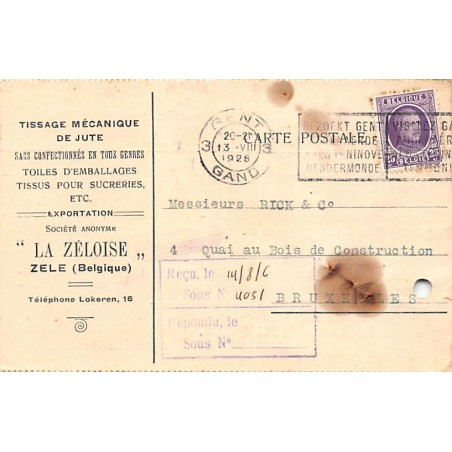 TISSAGE MÉCANIQUE
DE JUTE
SACS CONFECTIONNÉS EN TOUS GENRES
TOILES D'EMBALLAGES
TISSUS POUR SUCRERIES,
ETC.
EXPORTATION
SOCIÉTÉ ANONYME
" LA ZÉLOISE "
ZELE (Belgique)
Téléphone Lokeren, 16
3 GENT 3
13 -VIII
1928
GAND
CARTE POSTALE
BEZOEKT GENT VISITEZ GA
NINOVE
DENDERMONDE
BELGIQUE
25 25
Messieurs RICK & Co
4 Quai au Bois de Construction
BRUXELLES
Reçu, le 14/8/6
Sous N 4051
Répondu, le
Sous Nº